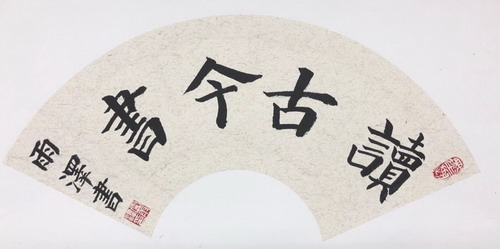 讀古今書
雨澤書